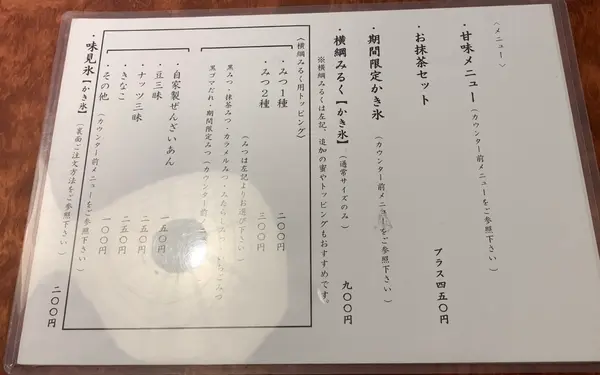 (メニュー)
・甘味メニュー(カウンター前メニューをご参照下さい)
・お抹茶セット プラス四五〇円
・期間限定かき氷(カウンター前メニューをご参照下さい)
・横綱みるく【かき氷】(通常サイズのみ) 九〇〇円
※横綱みるくは左記、追加の蜜やトッピングもおすすめです。
(横綱みるく用トッピング)
・みつ1種 二〇〇円
・みつ2種 三〇〇円
(みつは左記よりお選び下さい)
黒みつ・抹茶みつ・カラメルみつ・みたらしみつ・いちごみつ
黒ゴマだれ・期間限定みつ(カウンター前
・自家製ぜんざいあん 一五〇円
・豆三昧 二五〇円
・ナッツ三昧 二五〇円
・きなこ 一〇〇円
・その他(カウンター前メニューをご参照下さい)
・味見氷【かき氷】(裏面ご注文方法をご参照下さい) 二〇〇円